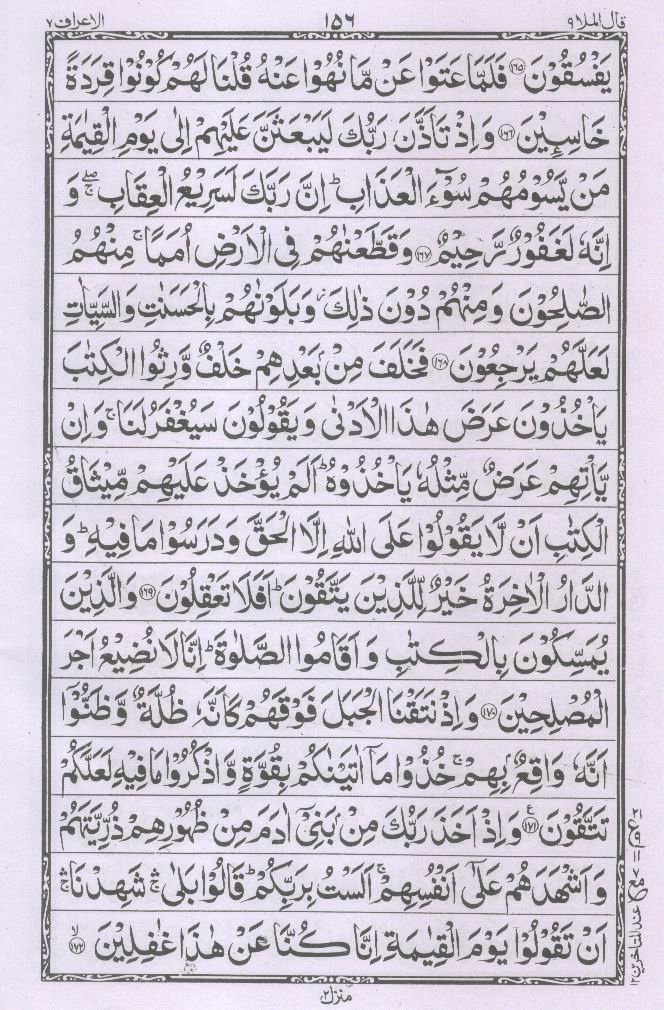 قال الملا ٩ ١٥٦ الاعراف ٧
يَفْسُقُوْنَ ﴿١٦٥﴾ فَلَمَّا عَتَوْا عَنْ مَّا نُهُوْا عَنْهُ قُلْنَا لَهُمْ كُوْنُوْا قِرَدَةً
خَاسِـِٕيْنَ ﴿١٦٦﴾ وَاِذْ تَاَذَّنَ رَبُّكَ لَيَبْعَثَنَّ عَلَيْهِمْ اِلٰى يَوْمِ الْقِيٰمَةِ
مَنْ يَّسُوْمُهُمْ سُوْٓءَ الْعَذَابِ ؕ اِنَّ رَبَّكَ لَسَرِيْعُ الْعِقَابِ ۚۖ وَ
اِنَّهٗ لَغَفُوْرٌ رَّحِيْمٌ ﴿١٦٧﴾ وَقَطَّعْنٰهُمْ فِى الْاَرْضِ اُمَمًا ۚ مِنْهُمُ
الصّٰلِحُوْنَ وَمِنْهُمْ دُوْنَ ذٰلِكَ ؗ وَبَلَوْنٰهُمْ بِالْحَسَنٰتِ وَالسَّيِّاٰتِ
لَعَلَّهُمْ يَرْجِعُوْنَ ﴿١٦٨﴾ فَخَلَفَ مِنْۢ بَعْدِهِمْ خَلْفٌ وَّرِثُوا الْكِتٰبَ
يَاْخُذُوْنَ عَرَضَ هٰذَا الْاَدْنٰى وَيَقُوْلُوْنَ سَيُغْفَرُ لَنَا ۚ وَاِنْ
يَّاْتِهِمْ عَرَضٌ مِّثْلُهٗ يَاْخُذُوْهُ ؕ اَلَمْ يُؤْخَذْ عَلَيْهِمْ مِّيْثَاقُ
الْكِتٰبِ اَنْ لَّا يَقُوْلُوْا عَلَى اللّٰهِ اِلَّا الْحَقَّ وَدَرَسُوْا مَا فِيْهِ ؕ وَ
الدَّارُ الْاٰخِرَةُ خَيْرٌ لِّلَّذِيْنَ يَتَّقُوْنَ ؕ اَفَلَا تَعْقِلُوْنَ ﴿١٦٩﴾ وَالَّذِيْنَ
يُمَسِّكُوْنَ بِالْكِتٰبِ وَاَقَامُوا الصَّلٰوةَ ؕ اِنَّا لَا نُضِيْعُ اَجْرَ
الْمُصْلِحِيْنَ ﴿١٧٠﴾ وَاِذْ نَتَقْنَا الْجَبَلَ فَوْقَهُمْ كَاَنَّهٗ ظُلَّةٌ وَّظَنُّوْٓا
اَنَّهٗ وَاقِعٌۢ بِهِمْ ۚ خُذُوْا مَاۤ اٰتَيْنٰكُمْ بِقُوَّةٍ وَّاذْكُرُوْا مَا فِيْهِ لَعَلَّكُمْ
تَتَّقُوْنَ ﴿١٧١﴾ ع وَاِذْ اَخَذَ رَبُّكَ مِنْۢ بَنِىْۤ اٰدَمَ مِنْ ظُهُوْرِهِمْ ذُرِّيَّتَهُمْ
وَاَشْهَدَهُمْ عَلٰٓى اَنْفُسِهِمْ ۚ اَلَسْتُ بِرَبِّكُمْ ؕ قَالُوْا بَلٰى ۛۚ شَهِدْنَا ۛۚ
اَنْ تَقُوْلُوْا يَوْمَ الْقِيٰمَةِ اِنَّا كُنَّا عَنْ هٰذَا غٰفِلِيْنَ ﴿١٧٢﴾ لا
منزل ٢
عند المتأخرين ١٢